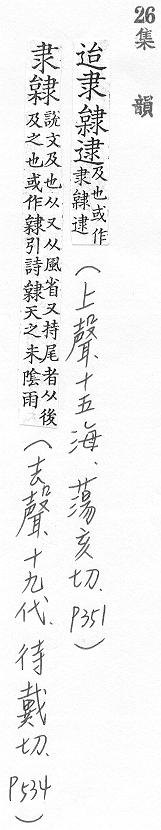 26集韻
迨隶䚂逮及也或作隶䚂逮(上聲、十五海、蕩亥切、P351)
隶䚂說文及也从又从𡲬省又持尾者从後及之也或作䚂引詩䚂天之未陰雨(去聲、十九代、待戴切、P534)